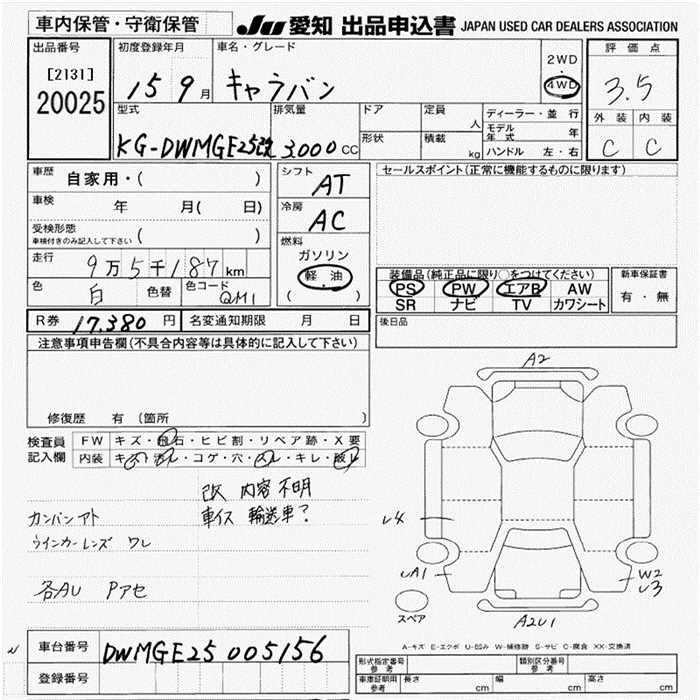 車内保管・守衛保管 JU 愛知 出品申込書 JAPAN USED CAR DEALERS ASSOCIATION
出品番号
[2131]
20025
初度登録年月
15 9月
車名・グレード
キャラバン
2WD
・
4WD
評価点
3.5
外装 内装
C C
型式
KG-DWMGE25改
排気量
3.000 CC
ドア
形状
定員
人
積載
kg
ディーラー・並行
モデル年式 年
ハンドル 左・右
車歴 自家用・( )
車検 年 月( 日)
受検形態
車検付きのみ記入して下さい ( )
走行 9万5千187km
色 白 色替 色コード QM1
シフト AT
冷房 AC
燃料
ガソリン
軽油
( )
R券 17.380 円 名変通知期限 月 日
セールスポイント(正常に機能するものに限ります)
装備品(純正品に限り〇をつけてください)
PS PW エアB AW
SR ナビ TV カワシート
新車保証書
有・無
後日品
注意事項申告欄(不具合内容等は具体的に記入して下さい)
修復歴 有(箇所 )
検査員記入欄
FW キズ・飛石・ヒビ割・リペア跡・X要
内装 キズ・汚れ・コゲ・穴・・キレ・
改 内容不明
車イス 輸送車?
カンバンアト
ウインカーレンズ ワレ
各AU Pアセ
A2
A1
W2
A2U1
スペア
A-キズ E-エクボ U-凹み W-補修跡 S-サビ C-腐食 XX-交換済
車台番号 DWMGE25 005156
登録番号
形式指定番号 参考
類別区分番号 参考
車庫証明用 参考 長さ cm 幅 cm 高さ cm